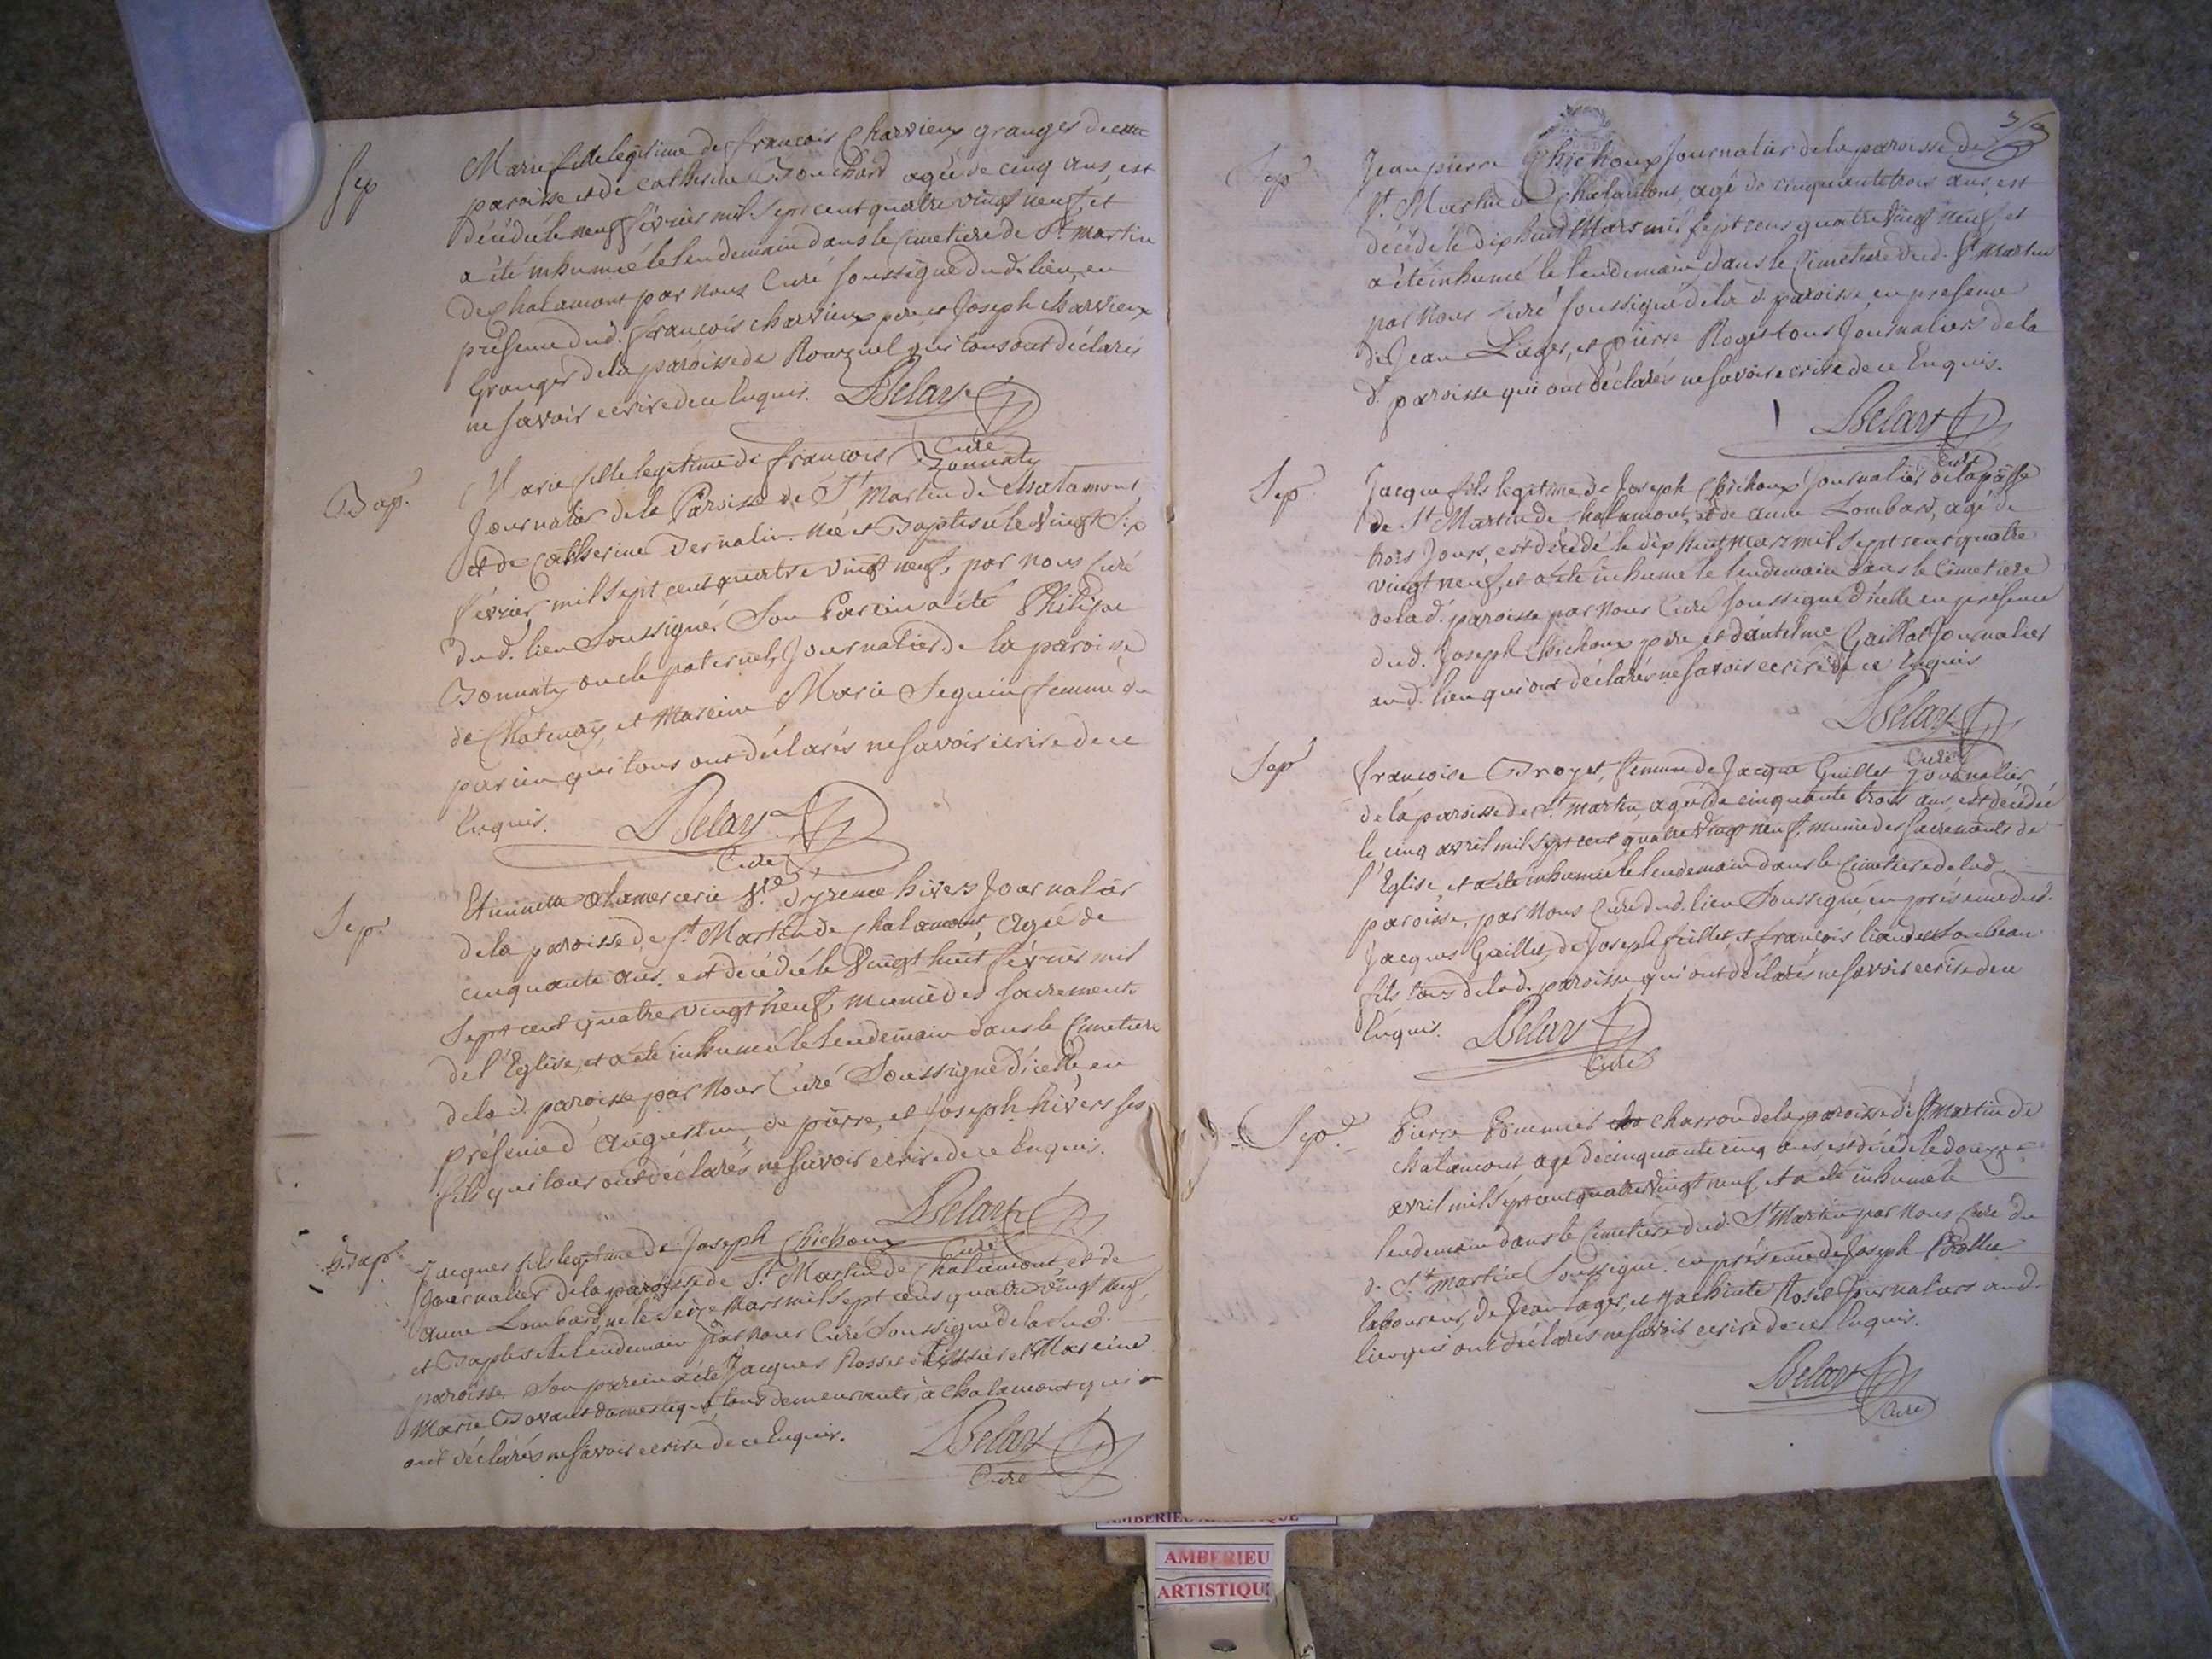 Sep
Marie fille legitime de françois Charvieux granger de cette
paroisse et de Catherine Bouchard agée de cinq ans, est
décédée le neuf février mil sept cent quatre vingt neuf, et
a été inhumée le lendemain dans le Cimetiere de St. Martin
de Chalamont par nous Curé soussigné dud. lieu, en
présence dud. françois charvieux pere et Joseph charvieux
Granger de la paroisse de qui tous ont déclarés
ne savoir ecrire de ce Enquis. Belay
Curé
Bap.
Marie fille legitime de françois Bonnaty
Journalier de la Paroisse de St Martin de Chalamont
et de Catherine Vernalin. née et Baptisée le Vingt Six
février mil sept cent quatre vingt neuf, par nous Curé
dud. lieu Soussigné, Son Parein a été Philipe
Bonnaty oncle paternel, Journalier de la paroisse
de Chatenay, et Mareine Marie Seguin femme du
parein qui tous ont déclarés ne savoir ecrire de ce
Enquis. Belay
Curé
Sep.
hivers Journalier
de la paroisse de St. Martin de Chalamont, Agée de
cinquante ans. est décédée le Vingt huit février mil
Sept cent quatre vingt neuf, munie des sacrements
de l'Eglise, et a été inhumée le lendemain dans le Cimetiere
de la d. paroisse par Nous Curé Soussigné d'icelle, en
présence d'Augustin de pierre, et Joseph hivers ses
fils qui tous ont déclarés ne savoir ecrire de ce Enquis.
Belay
Curé
Bap.
Jacques fils legitime de Joseph Chichoux
Journalier de la paroisse de St. Martin de Chalamont, et de
Anne Lombard, né le Seize Mars mil sept cens quatre vingt neuf,
et Baptisé le lendemain par Nous Curé Soussigné de la sud.
paroisse Son parein a été Jacques Rosset et Mareine
Marie domestique tous demeurants à Chalamont qui
ont déclarés ne savoir ecrire de ce Enquis. Belay
Curé
Sep.
Jean pierre Chichoux Journalier de la paroisse de
St. Martin de Chalamont, agé de cinquante trois ans, est
décédé le dix huit Mars mil sept cens quatre vingt neuf, et
a été inhumé le lendemain dans le Cimetiere dud. St. Martin
par Nous Curé soussigné de la d. paroisse, en presence
de Jean Lager, et pierre Roges tous Journaliers de la
d. paroisse qui ont déclarés ne savoir ecrire de ce Enquis.
Belay
Curé
Sep.
Jacque fils legitime de Joseph Chichoux Journalier de la passe
de St Martin de Chalamont, et de Anne Lombard, agé de
trois Jours, est décédé le dix huit Mars mil Sept cent quatre
vingt neuf, et a été inhumé le lendemain dans le Cimetiere
de la d. paroisse par Nous Curé Soussigné d'icelle en présence
dud. Joseph Chichoux pere et d'antelme Gaillat Journalier
aud. lieu qui ont déclarés ne savoir ecrire de ce Enquis
Belay
Curé
Sep.
françoise Broyet, femme de Jacque Guillet Journalier
de la paroisse de St. Martin, agée de cinquante trois ans, est décédée
le cinq avril mil sept cent quatre Vingt neuf. munie des sacrements de
l'Eglise, et a été inhumée le lendemain dans le Cimetiere de la d.
paroisse, par Nous Curé dud. lieu Soussigné en présence dud.
Jacques Guillet, de Joseph feillet, et françois son beau
fils tous de la d. paroisse qui ont déclarés ne savoir ecrire de ce
Enquis. Belay
Curé
Sep.
Pierre charron de la paroisse de St Martin de
Chalamont agé de cinquante cinq ans est décédé le douze
avril mil Sept cent quatre Vingt neuf, et a été inhumé le
lendemain dans le Cimetiere dud. St Martin par Nous Curé du
d. St. Martin Soussigné. en présence de Joseph
laboureur, de Jean Lager, et hiacinte Roset Journaliers aud.
lieu qui ont déclarés ne savoir ecrire de ce Enquis.
Belay
Curé
AMBERIEU ARTISTIQUE
AMBERIEU
ARTISTIQU